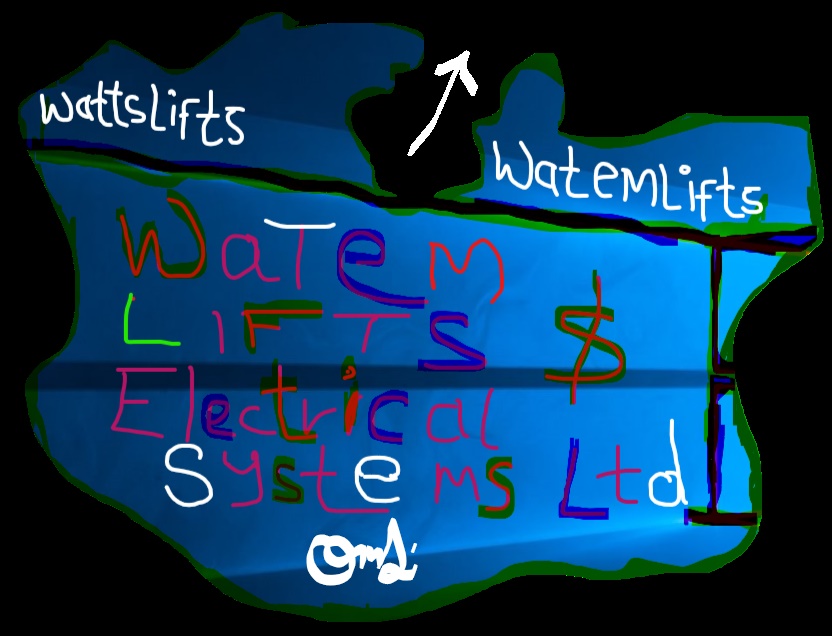 wattsLifts
WatemLifts
WaTem
LIFTS $
Electrical
Systems Ltd